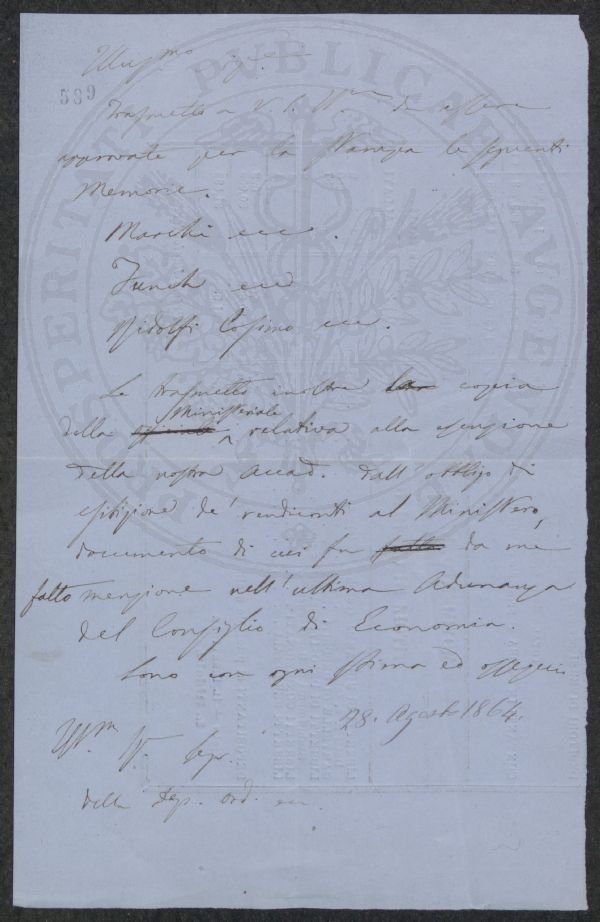 Illus.mo Sig.
589
Trasmetto a V. S. Ill.ma da essere
approvate per la stampa le seguenti
Memorie.
Marchi ecc.
Funch ecc
Ridolfi Cosimo ecc.
Le trasmetto inoltre copia
Ministeriale
della relativa alla esenzione
della nostra Accad. dall'obbligo di
esibizione de' rendiconti al Ministero,
documento di cui fu da me
fatto menzione nell'ultima Adunanza
del Consiglio di Economia.
Sono con ogni stima ed ossequio
28. Agosto 1864.
Ill.m S. Segr.
della Dep. Ord. ecc.
PROSPERITATI PVBLICAE AVGENDAE